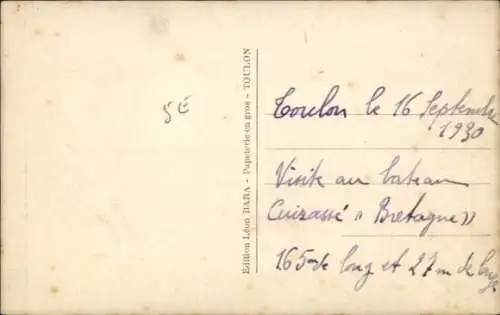 5€
Edition Léon BARA - Papeterie en gros - TOULON
Toulon le 16 Septembre
1930
Visite au bateau
Cuirassé « Bretagne »
165m de long et 27m de large